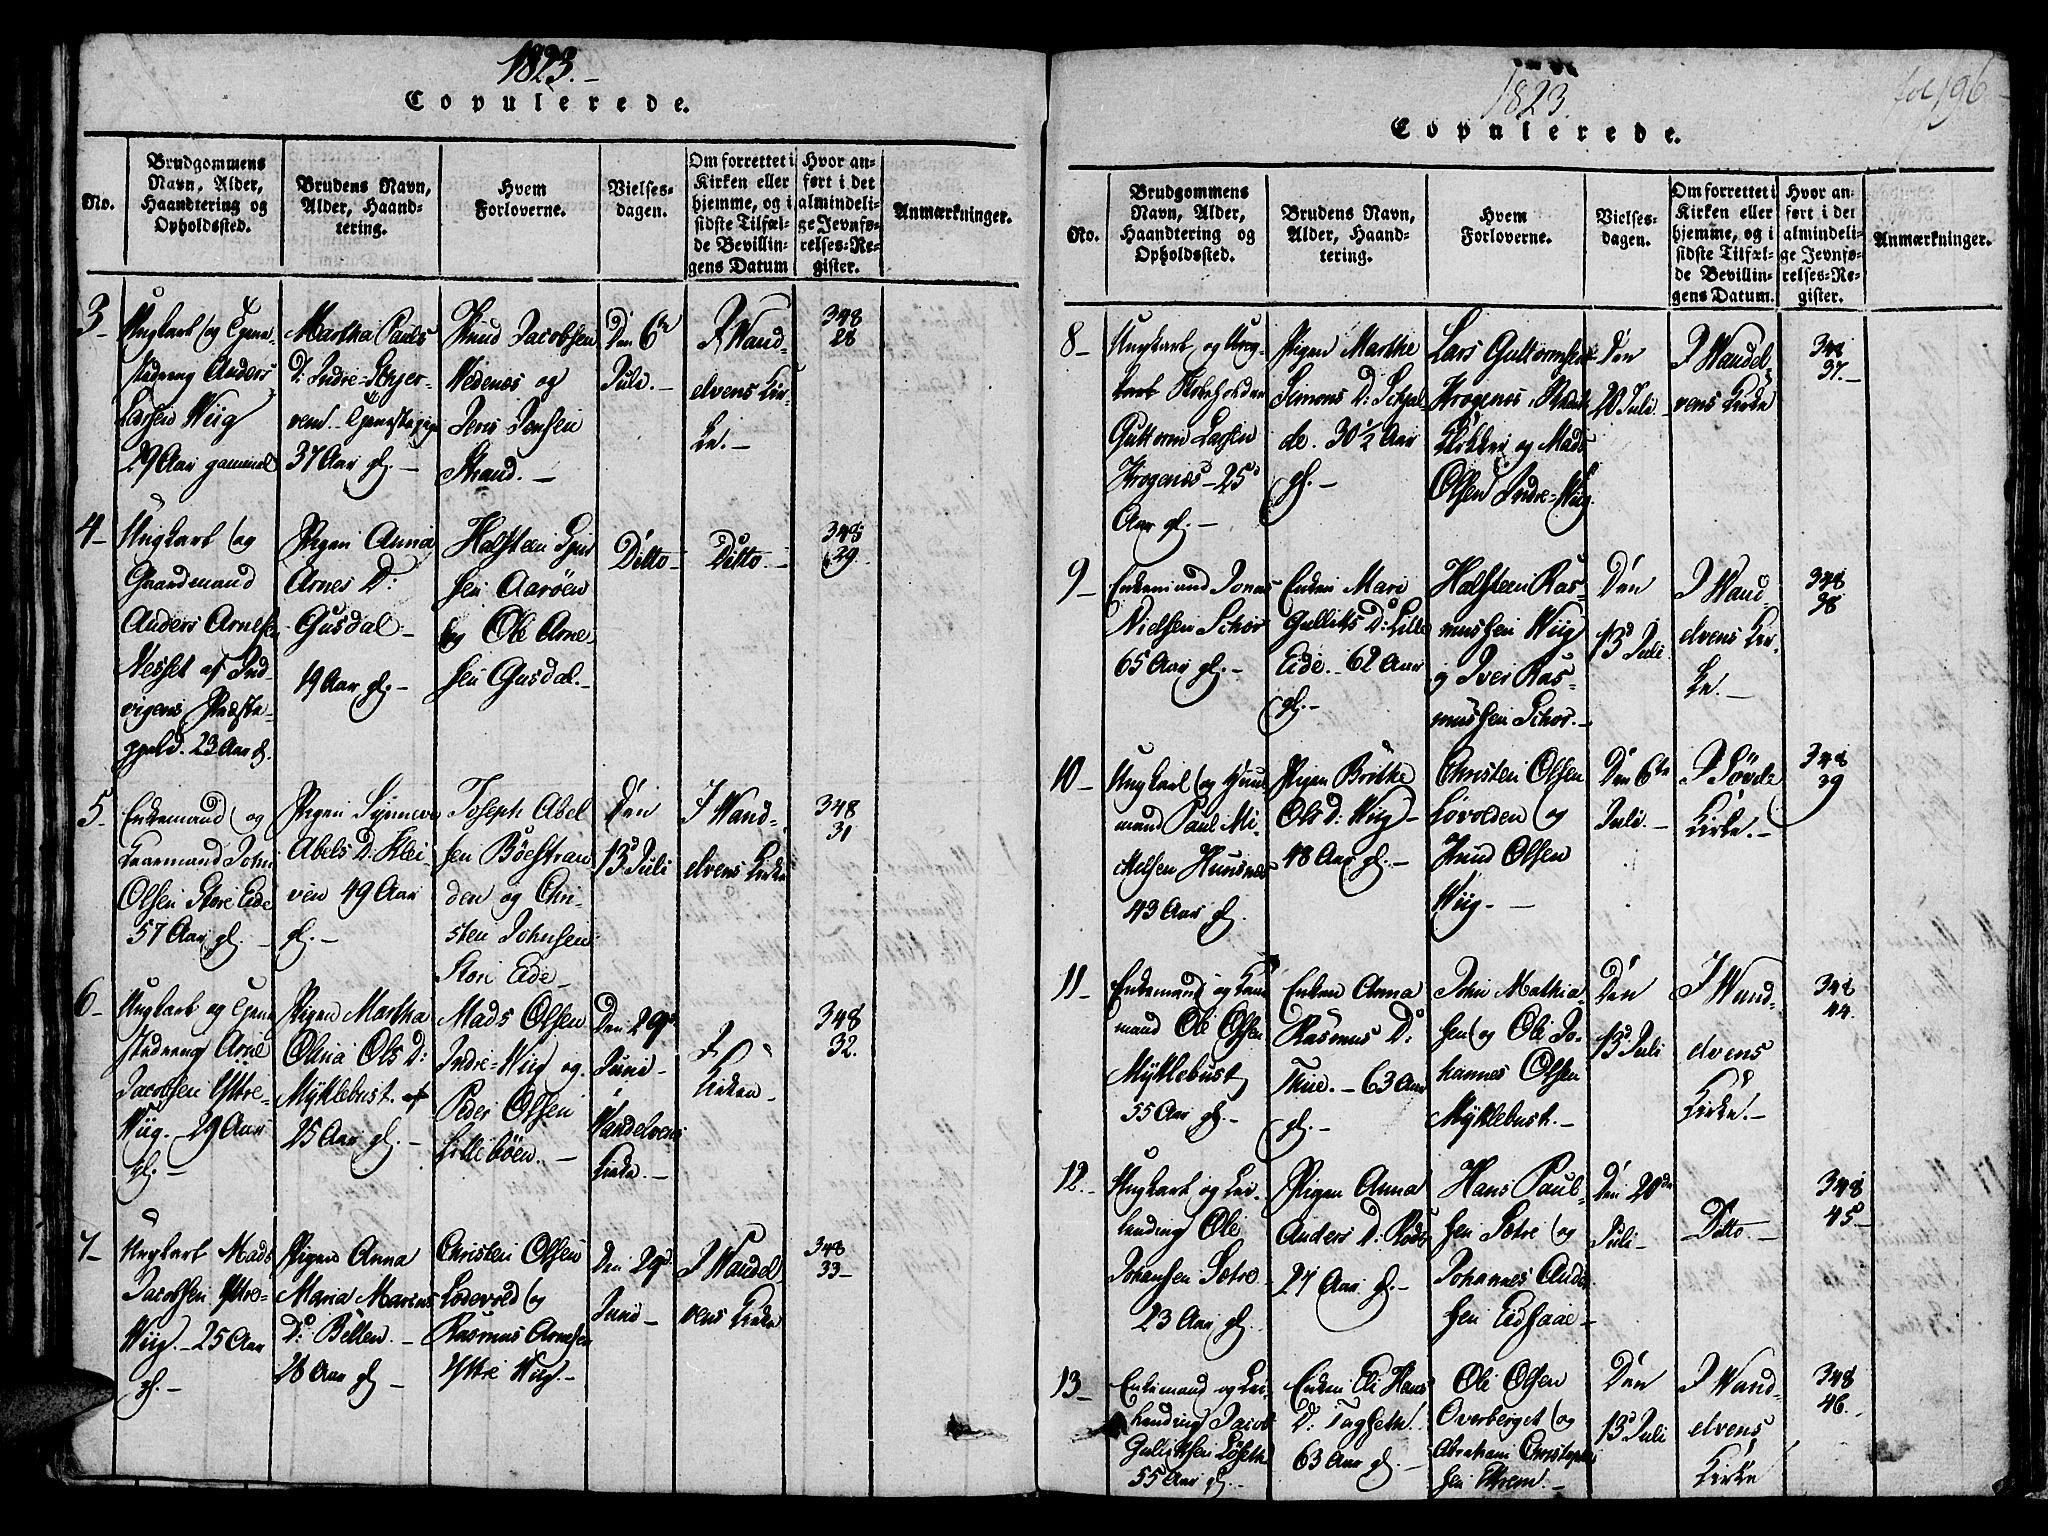 1823.-
Copulerede.
No.
Brudgommens
Navn, Alder,
Haandtering og
Opholdssted.
Brudens Navn,
Alder, Haand-
tering.
Hvem
Forloverne.
Vielses-
dagen.
Om forrettet i
Kirken eller
hjemme, og i
sidste Tilfæl-
de Bevillin-
gens Datum
Hvor an-
ført i det
almindeli-
ge Jevnfø-
relses-Re-
gister.
Anmærkninger.
3
Ungkarl og Tjene-
stedreng Anders
Larsen Wiig
29 Aar gammel
Martha Pauls
D:
37 Aar gl. -
Knud Jacobsen
Wedenes og
Jens Jensen
Strand. -
Den 6te
Juli. -
I Wand-
elvens Kir-
ke. -
348
28
4-
Ungkarl og
Gaardmand
Anders Arnesen
Nesset af Ind-
vigens Præste-
gjeld. 23 Aar gl.
Pigen Anna
Arnes D:
Gusdal -
19 Aar gl. -
Halsteen
sen Aarøen
og Ole Arne
sen Gusdal. -
Ditto -
Ditto. -
348
29.
5-
Enkemand og
John
Olsen Store Eide
57 Aar gl. -
Pigen Synneve
Abels D: Klei-
ven 49 Aar
gl. -
Joseph Abel
sen Böestran
den og Chri-
sten Johnsen
Stori Eide -
Den
13de Juli
I Wand-
elvens Kirke
348
31
6-
Ungkarl og Tjene
stedreng Arne
Jacobsen Yttre-
Wiig. 29 Aar
gl. -
Pigen Martha
Olina Ols D:
Myklebust.
25 Aar gl. -
Mads Olsen
Indre-Wiig og
Peder Olsen
Lillebøen. -
Den 29de
Juni -
i
Wandelvens
Kirke. -
I
Kirken -
348
32.
7-
Ungkarl Mads
Jacobsen Yttre-
Wiig. - 25 Aar
gl. -
Pigen Anna
Maria Marius
D:
28 Aar gl -
Christen Olsen
og
Rasmus Arnesen
Yttre Wiig. -
Den 29de
Juni -
I Wandel
vens Kirke
348
33 -
1823.
fol 196 -
Copulerede.
No.
Brudgommens
Navn, Alder,
Haandtering og
Opholdssted.
Brudens Navn,
Alder, Haand-
tering.
Hvem
Forloverne.
Vielses-
dagen.
Om forrettet i
Kirken eller
hjemme, og i
sidste Tilfæl-
de Bevillin-
gens Datum.
Hvor an-
ført i det
almindeli-
ge Jevnfø-
relses-Re-
gister.
Anmærkninger.
8-
Ungkarl og
Guttorm Larsen
Krogenes - 25
Aar gl. -
Pigen Marthe
Simons D:
30 1/2 Aar
gl. -
Lars Guttormsen
Krogenes
og Mads
Olsen Indre-Wiig.
Den
20 Juli -
I Wandel-
vens Kirke
348
37. -
9-
Enkemand Jonas
Nielsen
65 Aar gl. -
Enken Mari
Gulliks D: Lille
Eide. - 62 Aar
gl. -
Halsteen Ras-
mussen Wiig
og Iver Ras-
mussen
Den
13de Juli
I Wand
elvens Kir-
ke. -
348
38
10-
Ungkarl og Huus
mand Paul Mi-
kkelsen
43 Aar gl.
Pigen Brithe
Ols D: Wiig -
48 Aar gl. -
Christen Olsen
Løvolden og
Knud Olsen
Wiig. -
Den 6te
Juli. -
I Søvde
Kirke. -
348
39
11-
Enkemand og
mand Ole Olsen
Myklebust
55 Aar gl. -
Enken Anna
Rasmus D:
Tkue. - 63 Aar
gl. -
John Mathia-
sen og Ole Jo-
hannes Olsen
Myklebust. -
Den
13de Juli
I Wand-
elvens
Kirke. -
348
44.
12.-
Ungkarl og Lei-
lending Ole
Johansen Sætre
23 Aar gl. -
Pigen Anna
Anders D:
27 Aar gl. -
Hans Paul-
sen Sætre og
Johannes Ander
sen Eidsaae -
Den 20de
Juli -
Ditto. -
348
45 -
13-
Enkemand og Lei
lending Jacob
Gulliksen
55 Aar gl. -
Enken Eli Hans
D:
63 Aar gl. -
Ole Olsen
Overberget og
Abraham Christophe
sen
Den
13de Juli
I Wand-
elvens
Kirke
348
46.